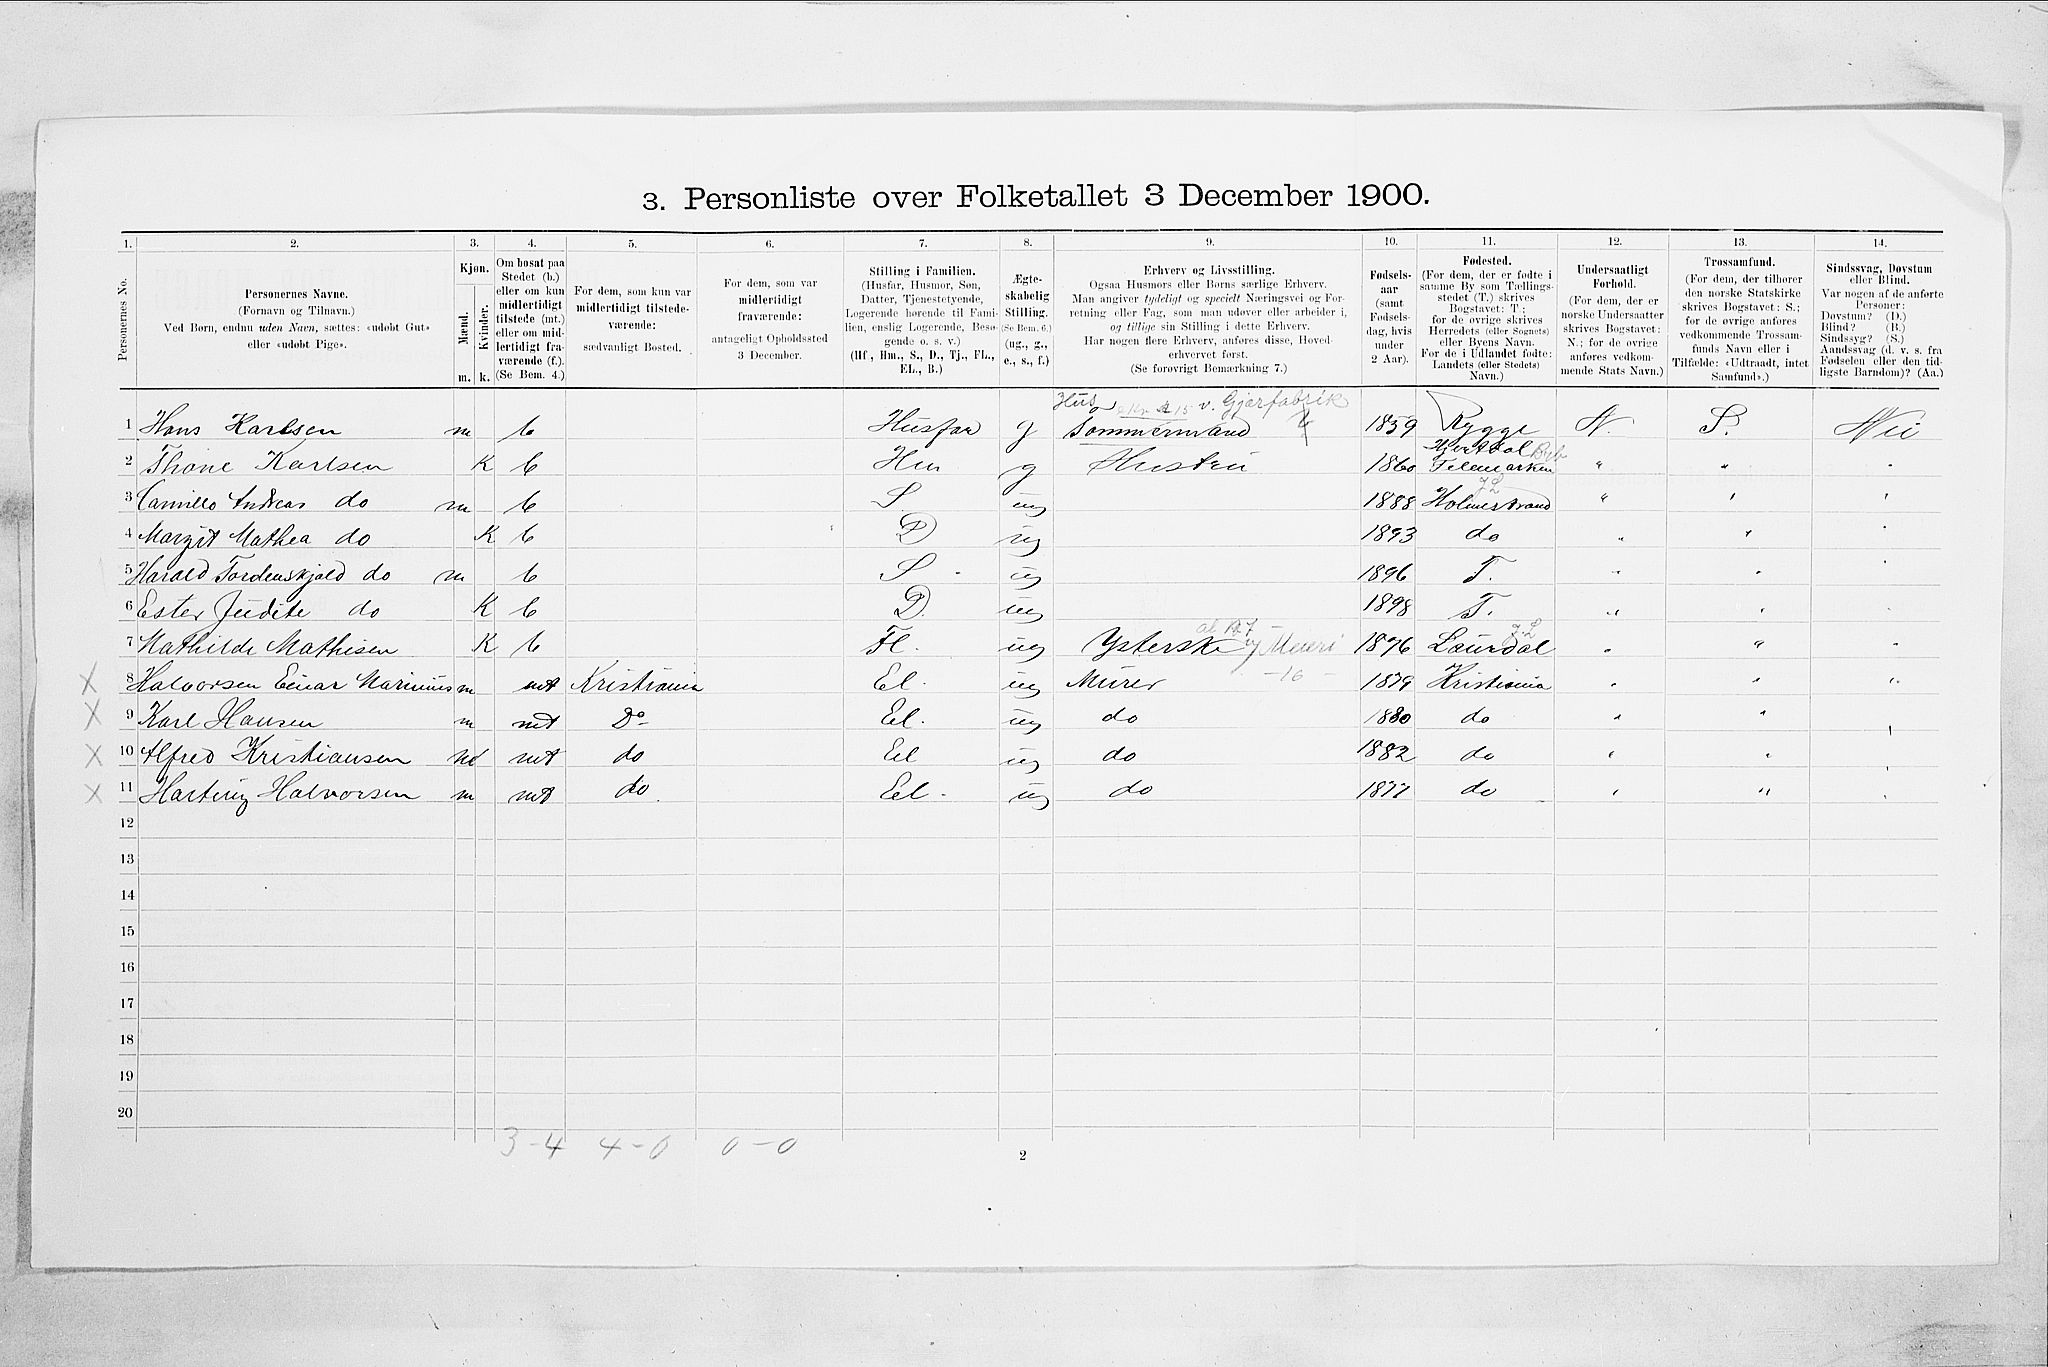 3. Personliste over Folketallet 3 December 1900.
1. 2. 3. 4. 5. 6. 7. 8. 9. 10. 11. 12. 13. 14.
Personernes No.
Personernes Navne.
(Fornavn og Tilnavn.)
Ved Børn, endnu uden Navn, sættes: «udøbt Gut»
eller «udøbt Pige».
Kjøn.
Mænd.
Kvinder.
m. k.
Om bosat paa
Stedet (b.)
eller om kun
midlertidigt
tilstede (mt.)
eller om mid-
lertidigt fra-
værende (f.).
(Se Bem. 4.)
For dem, som kun var
midlertidigt tilstede-
værende:
sædvanligt Bosted.
For dem, som var
midlertidigt
fraværende:
antageligt Opholdssted
3 December.
Stilling i Familien.
(Husfar, Husmor, Søn,
Datter, Tjenestetyende,
Logerende hørende til Fami-
lien, enslig Logerende, Besø-
gende o. s. v.)
(Hf., Hm., S., D., Tj., FL.,
EL., B.)
Ægte-
skabelig
Stilling.
(Se Bem. 6.)
(ug., g.,
e., s., f.)
Erhverv og Livsstilling.
Ogsaa Husmors eller Børns særlige Erhverv.
Man angiver tydeligt og specielt Næringsvei og For-
retning eller Fag, som man udøver eller arbeider i,
og tillige sin Stilling i dette Erhverv.
Har nogen flere Erhverv, anføres disse, Hoved-
erhvervet først.
(Se forøvrigt Bemærkning 7.)
Fødsels-
aar
(samt
Fødsels-
dag, hvis
under
2 Aar).
Fødested.
(For dem, der er fødte i
samme By som Tællings-
stedet (T.) skrives
Bogstavet: T.;
for de øvrige skrives
Herredets (eller Sognets)
eller Byens Navn.
For de i Udlandet fødte:
Landets (eller Stedets)
Navn.)
Undersaatligt
Forhold.
(For dem, der er
norske Undersaatter
skrives Bogstavet:
N.; for de øvrige
anføres vedkom-
mende Stats Navn.)
Trossamfund.
(For dem, der tilhører
den norske Statskirke
skrives Bogstavet: S.;
for de øvrige anføres
vedkommende Trossam-
funds Navn eller i
Tilfælde: «Udtraadt, intet
Samfund».)
Sindssvag, Døvstum
eller Blind.
Var nogen af de anførte
Personer:
Døvstum? (D.)
Blind? (B.)
Sindssyg? (S.)
Aandssvag (d. v. s. fra
Fødselen eller den tid-
ligste Barndom)? (Aa.)
Hus v. Gjærfabrik
1 Hans Karlsen m b Husfar g Tømmermand 1859 Rygge N. S. Nei
Hjertdal
2 Thone Karlsen K b Hm g Hustru 1860 Telemarken " "
J L
3 Camillo Andreas do m b S. ug 1888 Holmestrand " "
4 Margit Mathea do K b D ug 1893 do " "
5 Harald Tordenskjold do m b S ug 1896 T. " "
6 Ester Judite do K b D. ug 1898 T. " "
J. L
7 Mathilde Mathisen K b Fl. ug Ysterske Meieri 1876 Laurdal " "
X 8 Halvorsen Einar Marinius m mt Kristiania El. ug Murer -16- 1879 Kristiania " "
X 9 Karl Hansen m mt Do El. ug do 1880 do " "
X 10 Alfred Kristiansen m mt do El ug do 1882 do " "
X 11 Hartvig Halvorsen m mt do El. ug do 1877 do " "
12
13
14
15
16
17
18
19
20
3-4 4-0 0-0
2